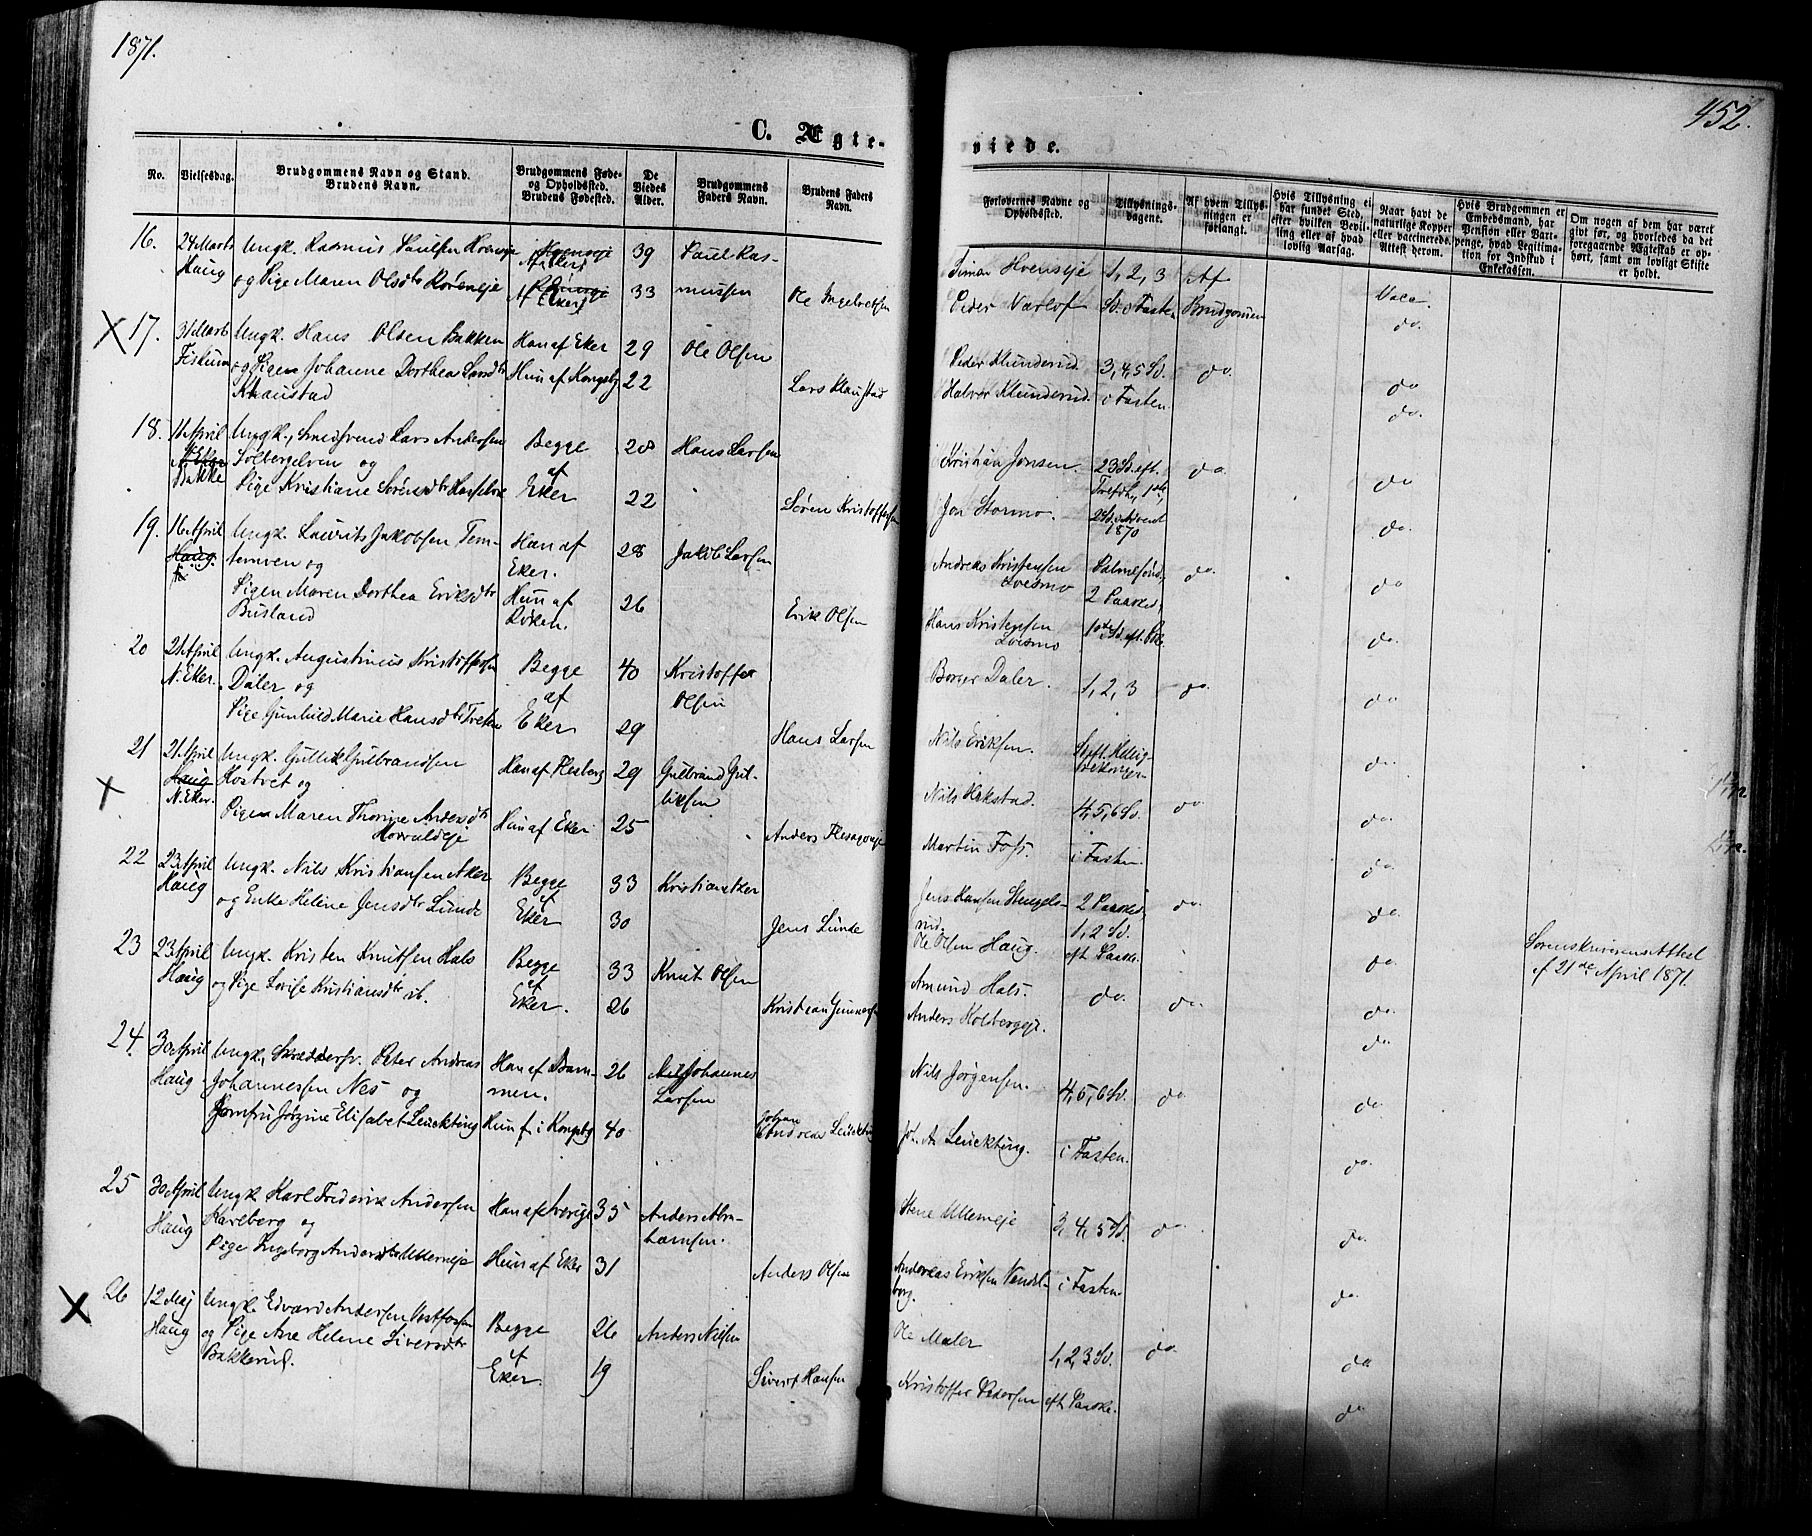 1871.
452.
C. Ægte-
viede.
No.
Vielsesdag.
Brudgommens Navn og Stand.
Brudens Navn.
Brudgommens Føde-
og Opholdssted.
Brudens Fødested.
De
Viedes
Alder.
Brudgommens
Faders Navn.
Brudens Faders
Navn.
Forlovernes Navne og
Opholdssted.
Tillysnings-
dagene.
Af hvem Tillys-
ningen er
forlangt.
Hvis Tillysning ei
har fundet Sted,
efter hvilken Bevil-
ling eller af hvad
lovlig Aarsag.
Naar havt de
naturlige Kopper
eller vaccinerede.
Attest derom.
Hvis Brudgommen er
Embedsmand, har
Pension eller Vart-
penge, hvad Legitima-
tion for Indskud i
Enkekassen.
Om nogen af dem har været
givt før, og hvorledes da det
foregaaende Ægteskab er op-
hørt, samt om lovligt Skifte
er holdt.
16. 24 Marts Ungk. Rasmus Paulsen Hvenseje Af Eker 39 Paul Ras-
Haug og Pige Maren Olsdtr Røreneje Af Eker 33 mussen Ole Ingebretsen
Simon Hvenseje 1, 2, 3 Af
Peder Varlof Sd. i Fasten Brudgommen Vacc.
do.
17. 31 Marts Ungk. Hans Olsen Bakken Han af Eker 29 Ole Olsen
Fiskum og Pigen Johanne Dorthea Larsdtr Hun af Kongsbg 22 Lars Klaustad
Klaustad
Peder Klunderud 3, 4, 5 Sd. do. do
Halvor Klunderud. i Fasten. do.
18. 11 April Ungk., Smedsvend Lars Andersen Begge 28 Hans Larsen
N. Eker Solbergelven og af
Bakke Pige Kristiane Sørensdtr Eker 22 Søren Kristoffersen
Kristian Jonsen. 23 Sd. eft. do. do
Jon Stormo. Trefdh, 1ste,
2 Sd. i Advent do.
1870
19. 16 April Ungk. Laurits Jakobsen Tem- Han af 28 Jakob Larsen
Haug temven og Eker.
Pigen Maren Dorthea Eriksdtr Hun af 26 Erik Olsen
Busland Røken.
Andreas Kristensen Palmesønd, do. do
Loesmo 2 Paasked,
Hans Kristensen 1ste Sd. eft. Pke. do.
Loesmo
20 21 April Ungk. Augustinus Kristoffersen Begge 40 Kristoffer
N. Eker. Daler og af Olsen
Pige Gunhild Marie Hansdtr Treten Eker 29 Hans Larsen
Borger Daler. 1, 2, 3 do. do.
Nils Eriksen. Sd. eft. Hellig- do.
trekonger
21 21 April Ungk. Gullik Gulbrandsen Han af Flesberg 29 Gulbrand Gul-
Haug Rostvet og liksen
N. Eker. Pigen Maren Thorine Andersdtr Hun af Eker 25 Anders
Horvaldeje
Nils Hakstad. 4, 5, 6 Sd. do. do.
Martin Foss. i Fasten. do.
22 23 April Ungk. Nils Kristiansen Aker Begge 33 Kristian Aker
Haug og Enke Helene Jensdtr Lunde af Eker 30 Jens Lunde
Jens Hansen Stengels- 2 Paasked do. do.
rud. 1, 2 Sd.
Ole Olsen Haug. eft Paaske. do. Sorenskriverens Attest
af 21de April 1871.
23 23 April Ungk. Kristen Knutsen Hals Begge 33 Knut Olsen
Haug og Pige Lovise Kristiansdtr ib. af Eker. 26 Kristian Gunnersen
Amund Hals. do. do. do.
Anders Holbergeje. do
24. 30 April Ungk., Skreddersv. Peter Andreas Han af Dram- 26 Johannes
Haug Johannessen Nes og men. Larsen
Jomfru Jørgine Elisabet Leuckting Hun f. i Kongsbg 40 Johan Andreas Leuckting
Nils Jørgensen. 4, 5, 6 Sd. do. do.
Joh. A. Leuckting. i Fasten. do.
25 30 April Ungk. Karl Frederik Andersen Han af Sverige 35 Anders Abra-
Haug Karlberg og hamsen.
Pige Ingeborg Andersdtr Ullerneje Hun af Eker 31 Anders Olsen
Stene Ullerneje 3, 4, 5 Sd. do. do.
Andreas Eriksen Vendel- i Fasten. do.
borg.
26 12 Maj Ungk. Edvard Andersen Vestfossen Begge 26 Anders Nilsen
Haug og Pige Ane Helene Siversdtr af
Bakkerud. Eker. 19 Sivert Hansen
Ole Maler 1, 2, 3 Sd. do. do
Kristoffer Pedersen eft. Paaske. do.